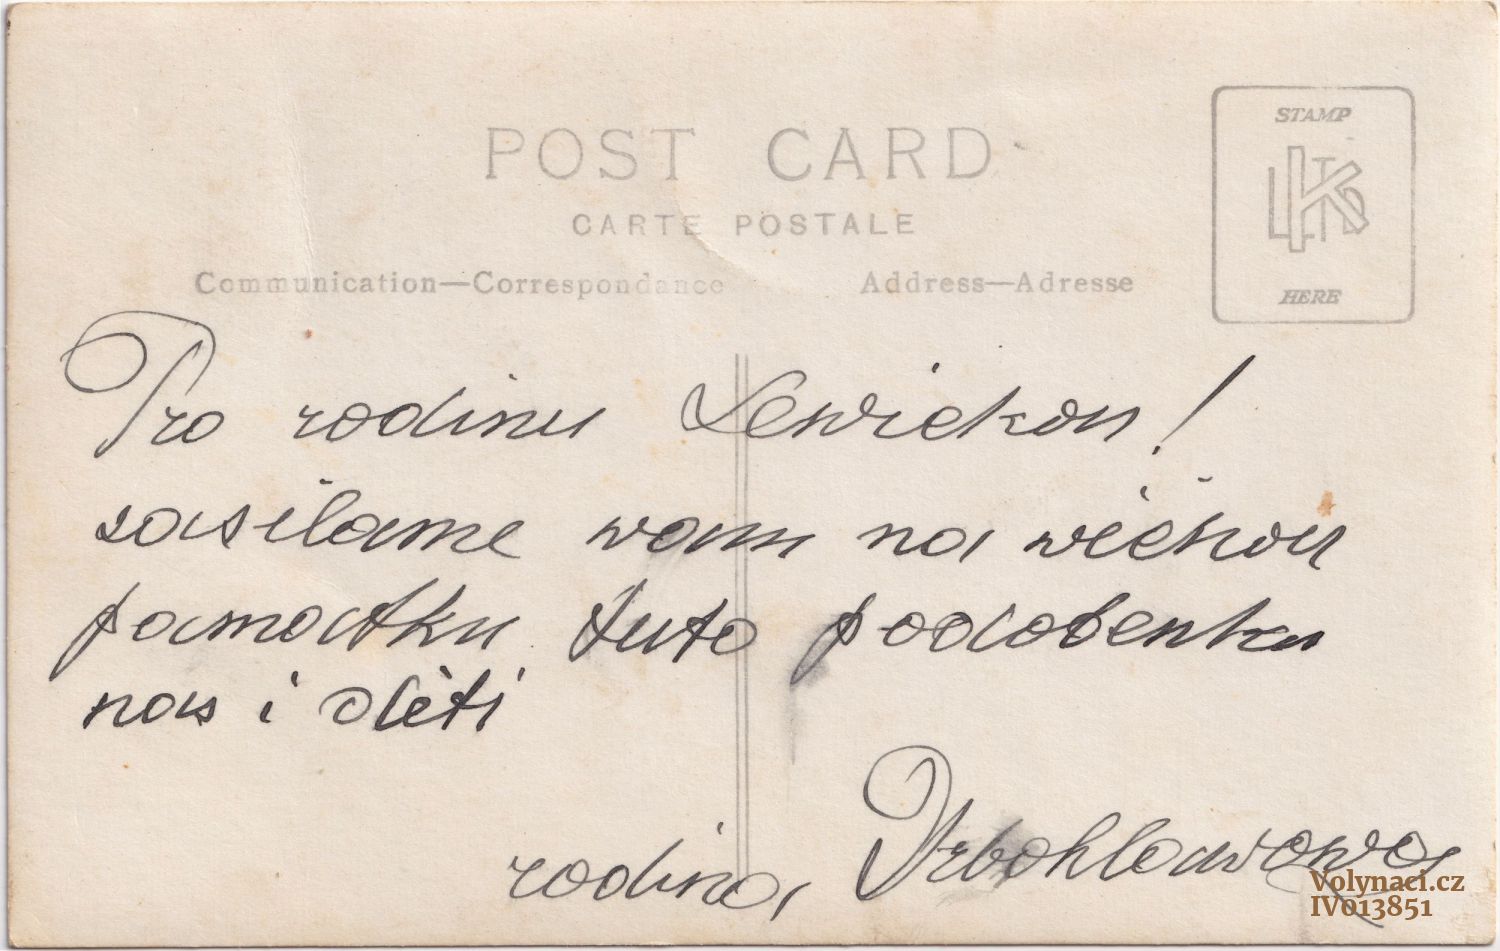 POST CARD
CARTE POSTALE
Communication—Correspondance
Address—Adresse
STAMP
HERE
Pro rodinu Lewickou!
zasilame wam na wěčnou
pamatku tuto podobenku
nas i děti
rodina Wrbohlawowa
Volynaci.cz
IV013851